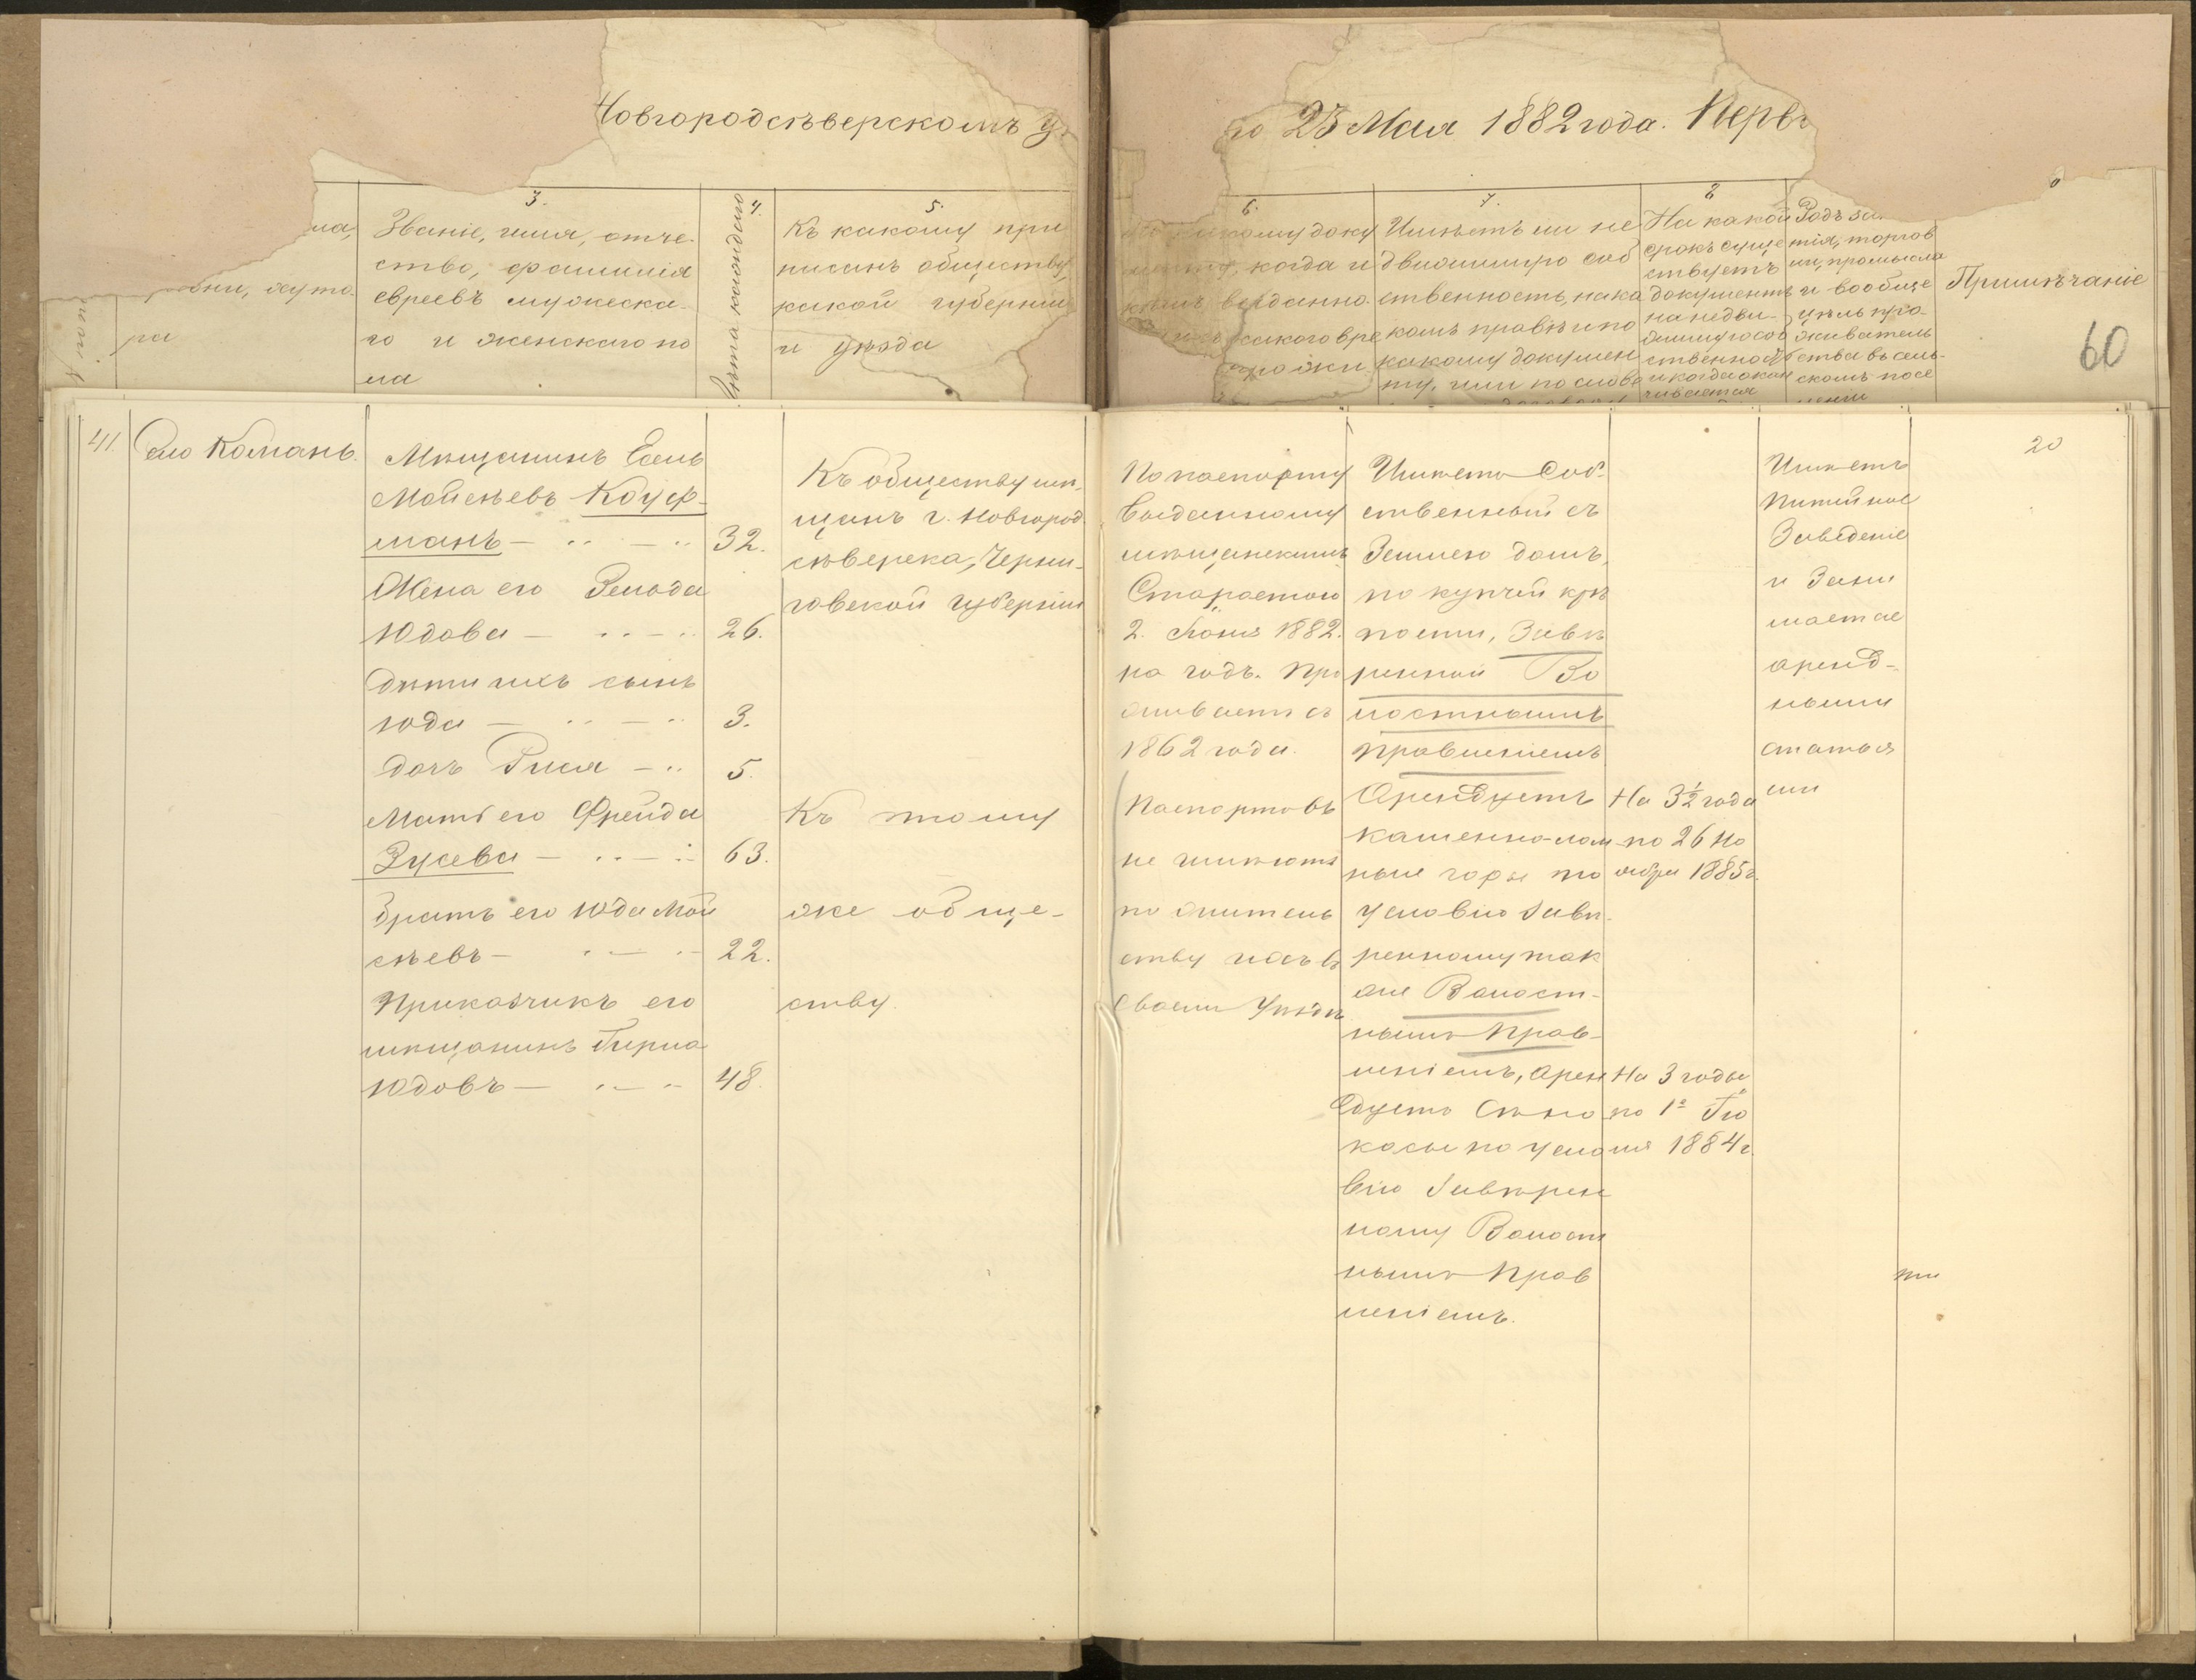 Новгородсѣверскомъ
23 Мая 1882 года.
3.
Званіе, имя, отче-
ство, фамилія
евреевъ мужеска-
го и женскаго по
ла
Лѣта каждаго
4.
5.
Къ какому при
писанъ обществу,
какой губерніи
и уѣзда
6.
какому доку
когда и
выданно
какого вре
7.
Имѣетъ ли не
движимую соб
ственность, на ка
комъ правѣ и по
какому докумен
ту, или по слове
8
На какой
срокъ суще
ствуетъ
документъ
на недви-
жимую соб
ственность
и когда окан
чивается
Родъ за
тія, торгов
ли, промысла
и вообще
цѣль про-
живатель
ства въ сель-
скомъ посе
леніи
Примѣчаніе
60
41.
Село Комань.
Мѣщанинъ Есель
Мойсѣевъ Кауф-
манъ — 32.
Жена его Зельда
Юдова — 26.
Дѣти ихъ сынъ
Юда — 3.
дочь Рися — 5.
Мать его Фрейда
Зусева — 63.
Братъ его Юда Мой
сѣевъ — 22.
Приказчикъ его
мѣщанинъ Гирша
Юдовъ — 48.
Къ обществу мѣ-
щанъ г. Новгород.
сѣверска, Черни-
говской губерніи
Къ тому
же обще-
ству.
По паспорту
выданному
мѣщанскимъ
Старостою
2. Іюня 1882.
на годъ. Про
живаетъ съ
1862 года.
Паспортовъ
не имѣютъ
по житель
ству ихъ въ
своемъ Уѣздѣ
Имѣетъ соб-
ственный съ
Землею домъ,
по купчей крѣ
пости, Завѣ
ренной Во
лостнымъ
Правленіемъ
Арендуетъ
каменно-лом
ные горы по
условію завѣ-
ренному так
же Волост-
нымъ Прав-
леніемъ, арен
дуетъ Сѣно
косы по усло
вію Завѣрен
ному Волост
нымъ Прав
леніемъ.
На 3½ года
по 26 Но
ября 1885 г.
На 3 годы
по 1е Ію
ля 1884 г.
Имѣетъ
Питейное
Заведеніе
и Зани
мается
аренд-
ными
статья
ми
20